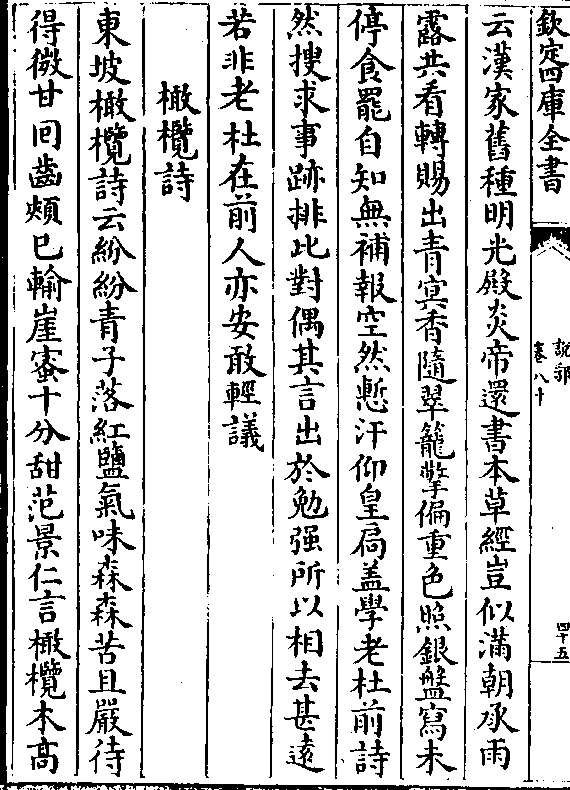 欽定四庫全書
說郛
卷八十
四十五
云漢家舊種明光殿炎帝還書本草經豈似滿朝承雨
露共看轉賜出青冥香隨翠籠擎偏重色照銀盤寫未
停食罷自知無補報空然慙汗仰皇扃盖學老杜前詩
然搜求事跡排比對偶其言出於勉强所以相去甚遠
若非老杜在前人亦安敢輕議
橄欖詩
東坡橄欖詩云紛紛青子落紅鹽氣味森森苦且嚴待
得微甘回齒頰已輸崖蜜十分甜范景仁言橄欖木高